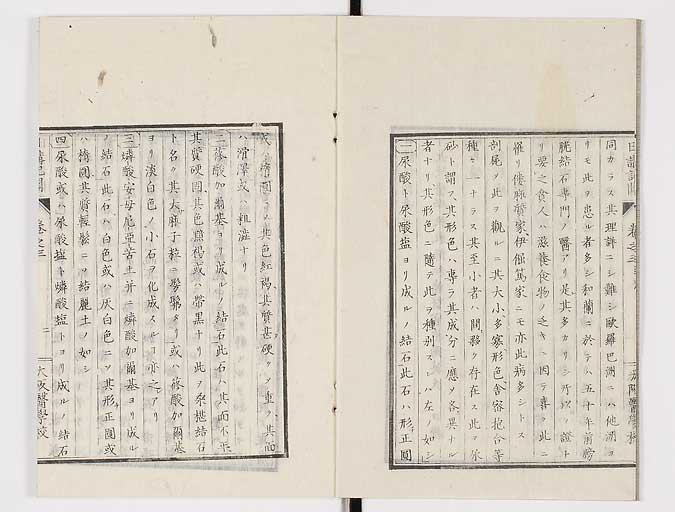 同カラス其理詳ニシ難シ歐羅巴洲ニハ他洲ヨ
リモ此ヲ患ル者多シ和蘭ニ於テハ五十年前膀
胱結石專門ノ醫アリ是其多カリシ所以ノ證ト
リ要之貧人ハ滋養食物ノ乏キニ因テ書ク此ニ
罹リ倭麻質家伊倔篤家ニモ亦此病多シトス
剖屍ノ此ヲ觀ルニ其大小多寡形色舍密抱合等
種々一ナラス其至小者ハ間夥ク存在ス此ヲ尿
砂ト謂フ其形色ハ專ラ其成分ニ應ノ各異ナル
者ナリ其形色ニ隨テ此ヲ種別スレハ左ノ如シ
一尿酸ト尿酸鹽ヨリ成ルノ結石此石ハ形正圓
或ハ橢圓ニノ其色紅褐其質甚硬クノ重ク其面
ハ滑澤或ハ粗澁ナリ
二蓚酸加爾基ヨリ成ルノ結石此石ハ其面不平
其質硬固其色黯褐或ハ帶黒ナリ此ヲ桑椹結石
ト名ク其大麻子粒ニ髣髴タリ或ハ蓚酸加爾基
ヨリ淡白色ノ小石ヲ化成スルコ亦之アリ
三燐酸安母尼亞苦土并ニ燐酸加爾基ヨリ成ル
ノ結石此石ハ白色或ハ灰白色ニノ其形正圓或
ハ橢圓其質輕鬆ニノ結麗土ノ如シ
四尿酸或ハ尿酸鹽ト燐酸鹽トヨリ成ルノ結石
卷之三
二
大阪醫學校